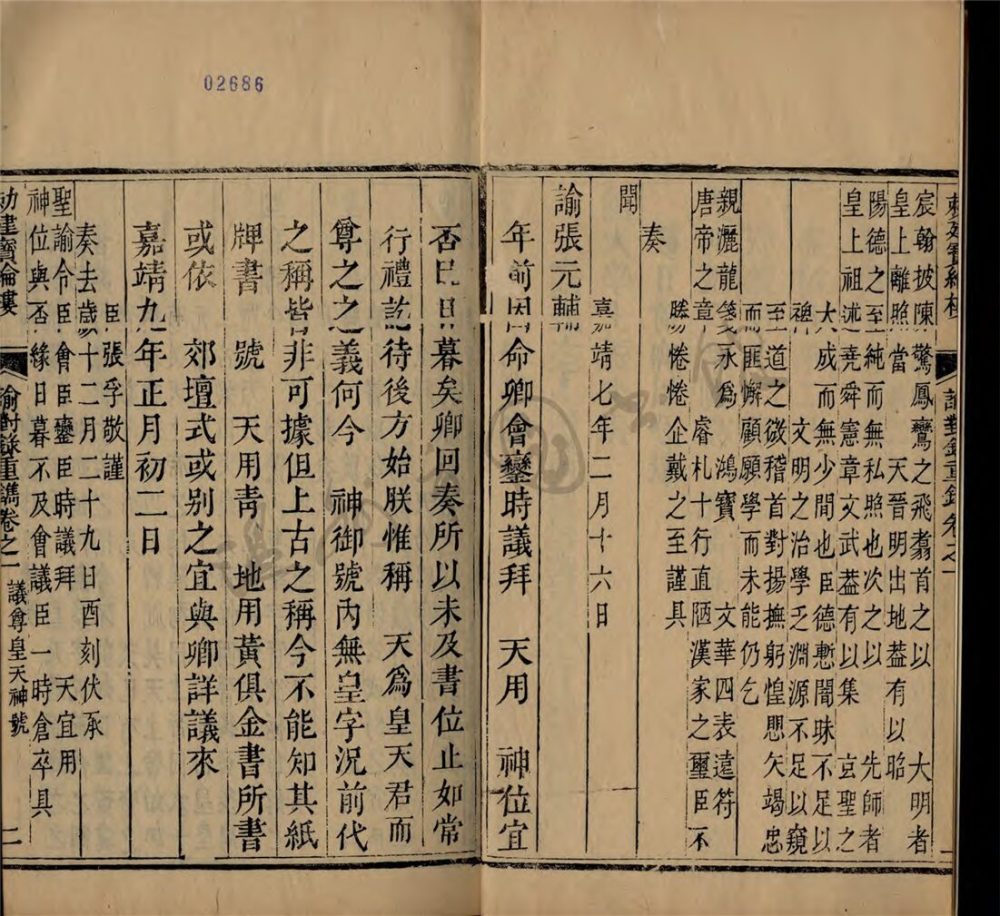 02686
宸翰披陳驚鳳鸞之飛翥首之以 大明者
皇上離照當 天晉明出地葢有以昭
陽德之至純而無私照也次之以 先師者
皇上祖述堯舜憲章文武葢有以集 玄聖之
大成而無少間也臣德慙闇昧不足以
禆 文明之治學乏淵源不足以窺
至道之微稽首對揚撫躬惶悪矢竭忠
而匪懈顧願學而未能仍乞
親灑龍箋永爲 鴻寶 文華四表遠符
唐帝之章 睿札十行直陋漢家之璽臣不
勝惓惓企戴之至謹具
奏
聞
嘉靖七年二月十六日
諭張元輔
年前因命卿會鑾時議拜 天用 神位宜
否已日暮矣卿回奏所以未及書位止如常
行禮訖待後方始朕惟稱 天爲皇天君而
尊之之義何今 神御號內無皇字況前代
之稱皆非可據但上古之稱今不能知其紙
牌書 號 天用靑 地用黃俱金書所書
或依 郊壇式或别之宜與卿詳議來
嘉靖九年正月初二日
臣張孚敬謹
奏去歲十二月二十九日酉刻伏承
聖諭令臣會臣鑾臣時議拜 天宜用
神位與否緣日暮不及會議臣一時倉卒具
勑建寳綸樓 諭對錄重鐫卷之一 議尊皇天神號 二